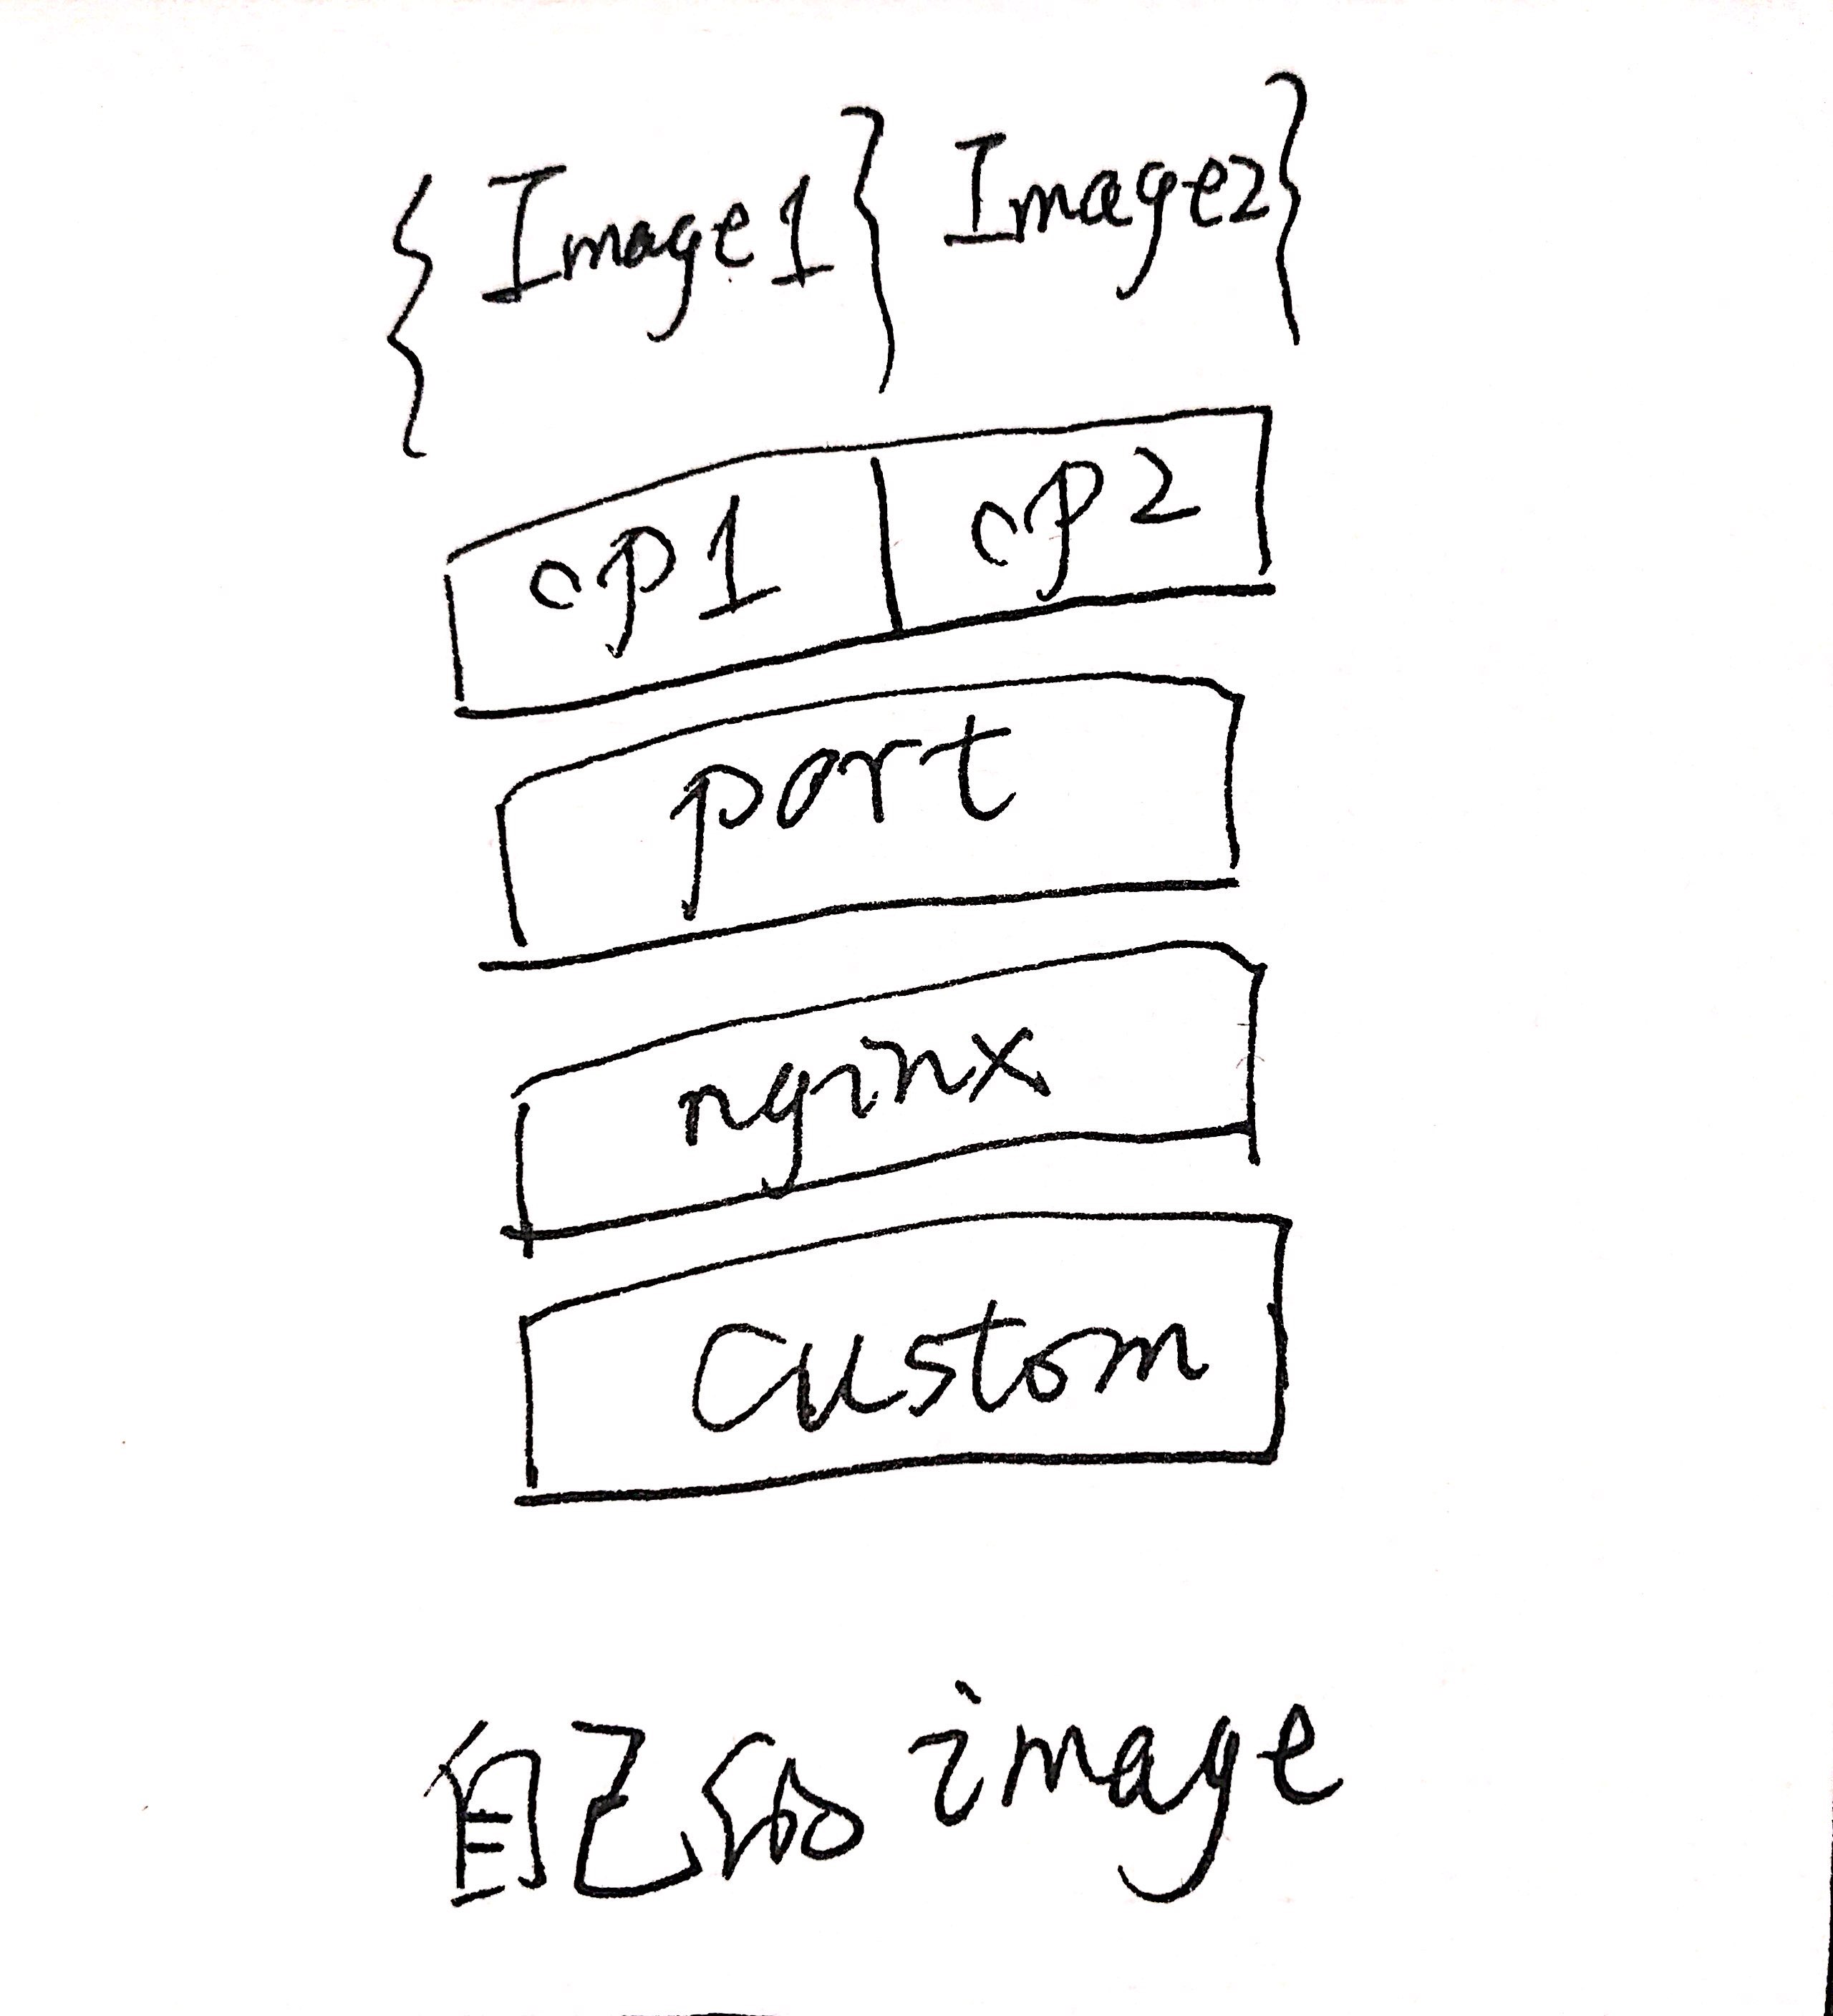 { Image1 } Image2 }
cp1 cp2
port
nginx
custom
自己 image